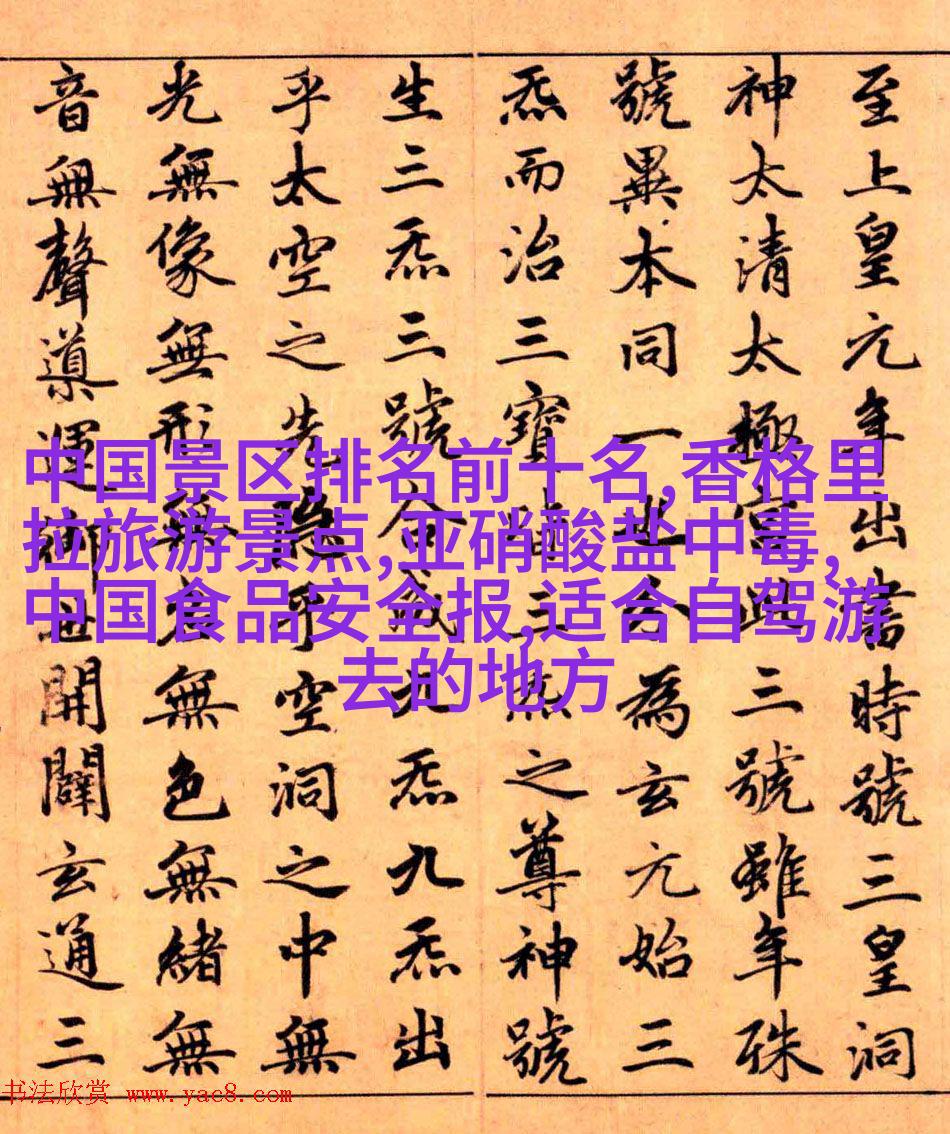 至上皇元年出書時號三皇洞
神太清太極宮此三號雖年殊
號異本同一也分為玄元始三
炁而治三寶皆三炁之尊神號
生三炁三號合成九炁九炁出
乎太空之先隱乎空洞之中無
光無像無形無名無色無緒無
音無聲導運御世開闢玄通三
中国景区排名前十名,香格里
拉旅游景点,亚硝酸盐中毒,
中国食品安全报,适合自驾游
去的地方
书法欣赏 www.yac8.com